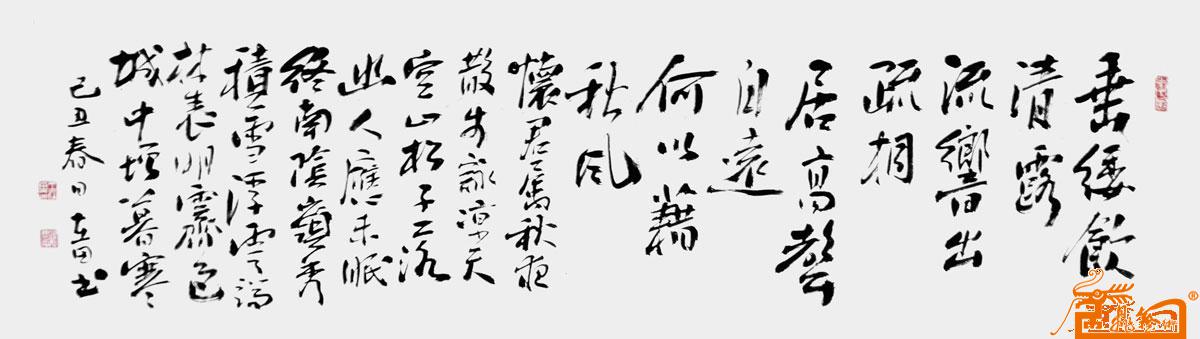 垂緌飲
清露
流響出
疏桐
居高聲
自遠
何以藉
秋風
懷君屬秋夜
散步詠涼天
空山松子落
幽人應未眠
終南陰嶺秀
積雪浮雲端
林表明霽色
城中增暮寒
己丑春日 书